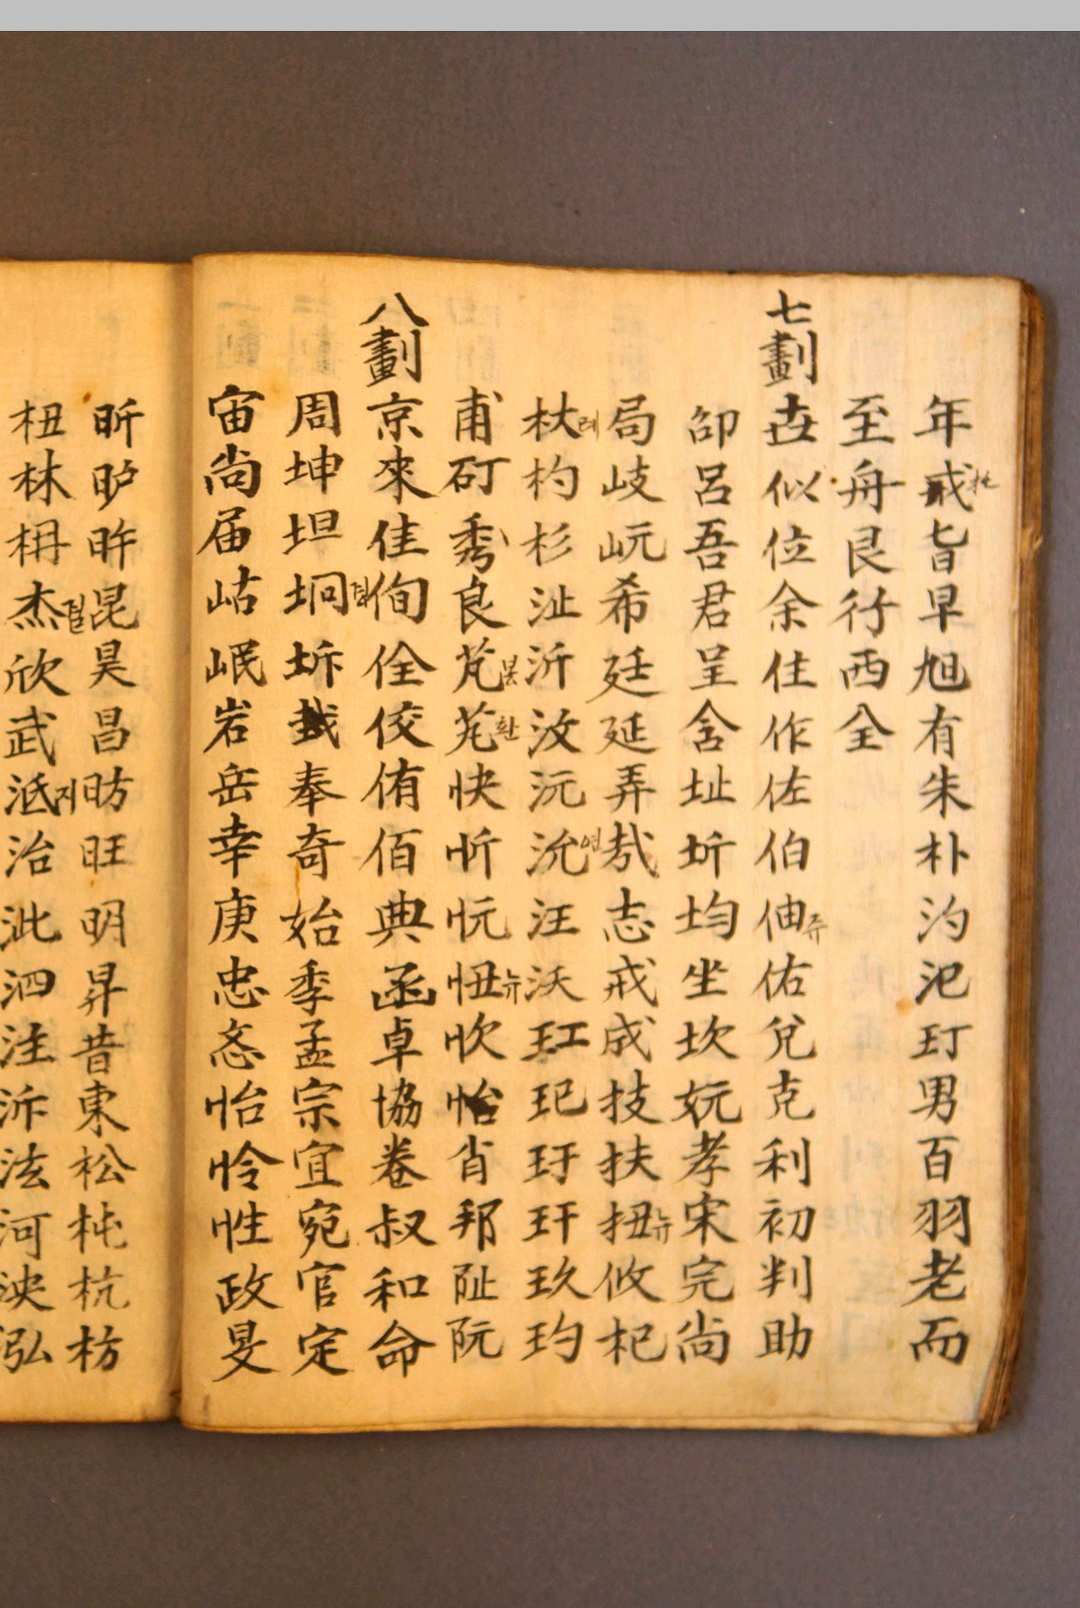 年戒旨早旭有朱朴汋汜玎男百羽老而
至舟艮行西全
七劃
世似位余住作佐伯伷쥬佑兌克利初判助
卲呂吾君呈含址圻均坐坎妧孝宋完尙
局岐岏希廷延弄㢤志戒成技扶扭뉴攸杞
杕례杓杉沚沂汶沅沇연汪沃玒玘玗玕玖玓
甫矴秀良芃봉芄환快忻忨忸뉴忺怡肖邦阯阮
八劃
京來佳侚佺佼侑佰典函卓協卷叔和命
周坤坦坰경坼哉奉奇始季孟宗宜宛官定
宙尙届岵岷岩岳幸庚忠忞怡怜性政旻
昕昈旿昆昊昌昉旺明昇昔東松杶杭枋
杻林枏杰걸欣武泜지治泚泗注泝泫河泱泓